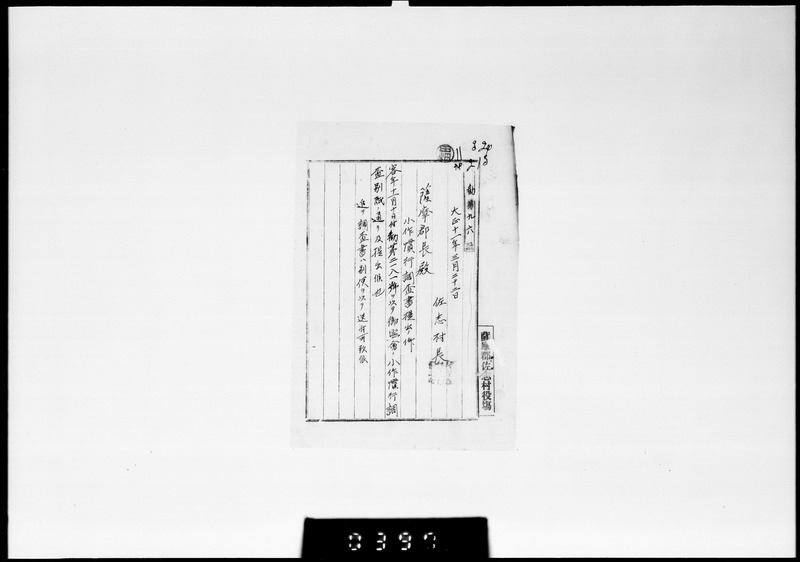 勧第九六号
大正十一年三月二十二日
佐志村長
薩摩郡長殿
小作慣行調査書提出ノ件
客年十一月十日付勧第二八一号ヲ以テ御照会ノ小作慣行調
査別紙ノ通リ及提出候也
追テ調査書ハ別便ヲ以テ送付可致候
薩摩郡佐志村役場
0397